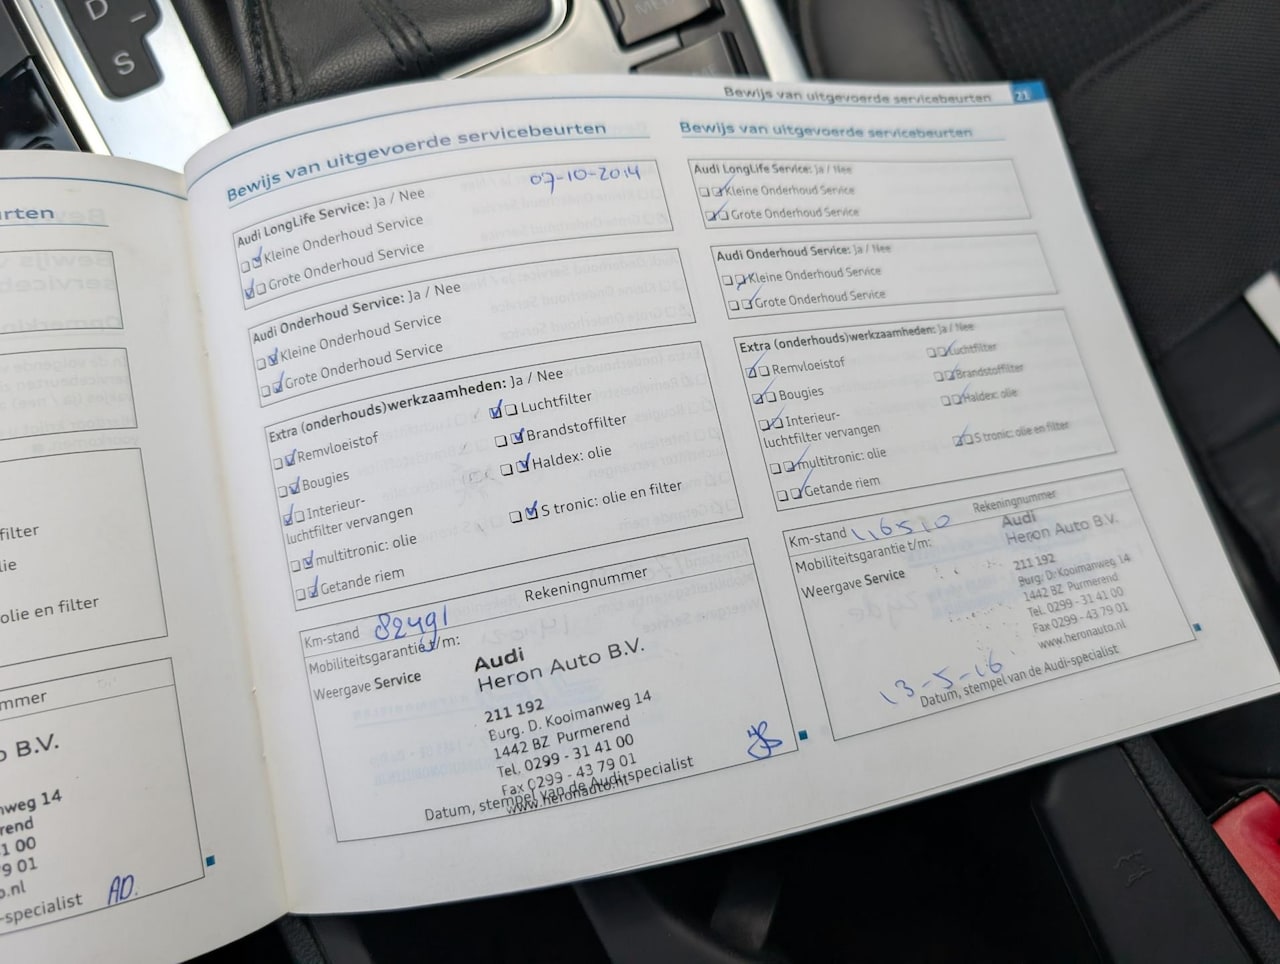 D
S
urten
filter
lie
olie en filter
mmer
o B.V.
nweg 14
rend
1 00
9 01
o.nl
-specialist AD.
Bewijs van uitgevoerde servicebeurten 21
Bewijs van uitgevoerde servicebeurten
07-10-2014
Audi LongLife Service: Ja / Nee
Kleine Onderhoud Service
Grote Onderhoud Service
Audi Onderhoud Service: Ja / Nee
Kleine Onderhoud Service
Grote Onderhoud Service
Extra (onderhouds)werkzaamheden: Ja / Nee
Remvloeistof Luchtfilter
Bougies Brandstoffilter
Interieur- Haldex: olie
luchtfilter vervangen
multitronic: olie S tronic: olie en filter
Getande riem
Km-stand 82491 Rekeningnummer
Mobiliteitsgarantie t/m:
Weergave Service
Audi
Heron Auto B.V.
211 192
Burg. D. Kooimanweg 14
1442 BZ Purmerend
Tel. 0299 - 31 41 00
Fax 0299 - 43 79 01
www.heronauto.nl
Datum, stempel van de Audi-specialist
Bewijs van uitgevoerde servicebeurten
Audi LongLife Service: Ja / Nee
Kleine Onderhoud Service
Grote Onderhoud Service
Audi Onderhoud Service: Ja / Nee
Kleine Onderhoud Service
Grote Onderhoud Service
Extra (onderhouds)werkzaamheden: Ja / Nee
Remvloeistof Luchtfilter
Bougies Brandstoffilter
Interieur- Haldex: olie
luchtfilter vervangen
multitronic: olie S tronic: olie en filter
Getande riem
Km-stand 116510 Rekeningnummer
Mobiliteitsgarantie t/m:
Weergave Service
Audi
Heron Auto B.V.
211 192
Burg. D. Kooimanweg 14
1442 BZ Purmerend
Tel. 0299 - 31 41 00
Fax 0299 - 43 79 01
www.heronauto.nl
13-5-16
Datum, stempel van de Audi-specialist